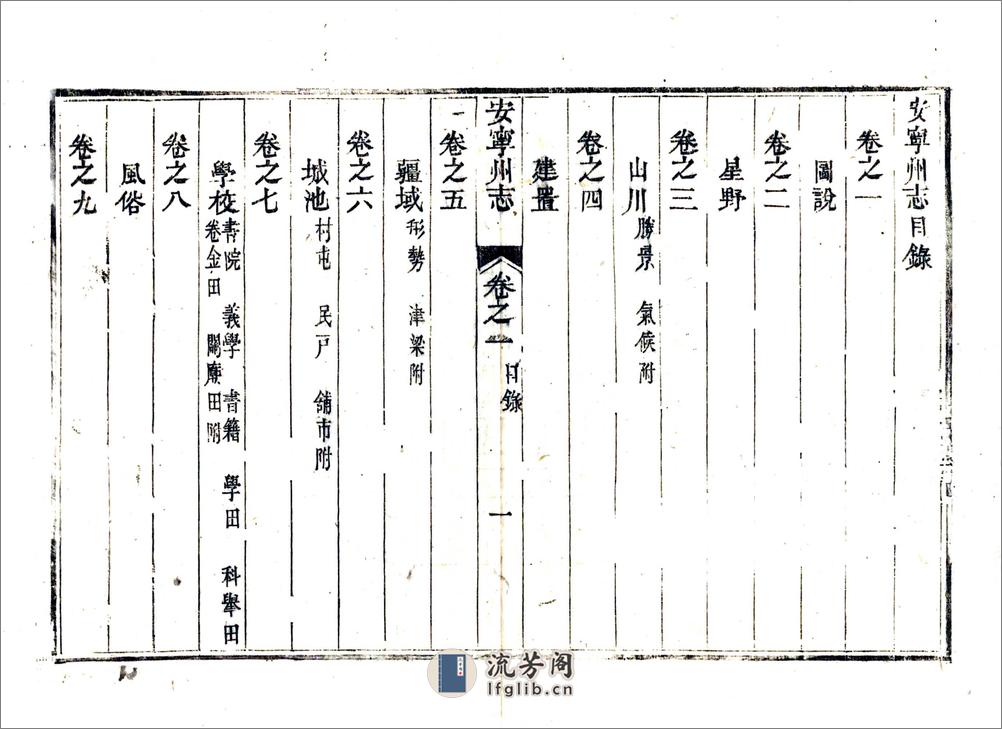 安寧州志目錄
卷之一
圖說
卷之二
星野
卷之三
山川勝景 氣候附
卷之四
建置
安寧州志 卷之一 目錄 一
卷之五
疆域形勢 津梁附
卷之六
城池村屯 民戸 舖市附
卷之七
學校書院 義學 書籍 學田 科舉田
卷金田 關廟田附
卷之八
風俗
卷之九
流芳阁
lfglib.cn